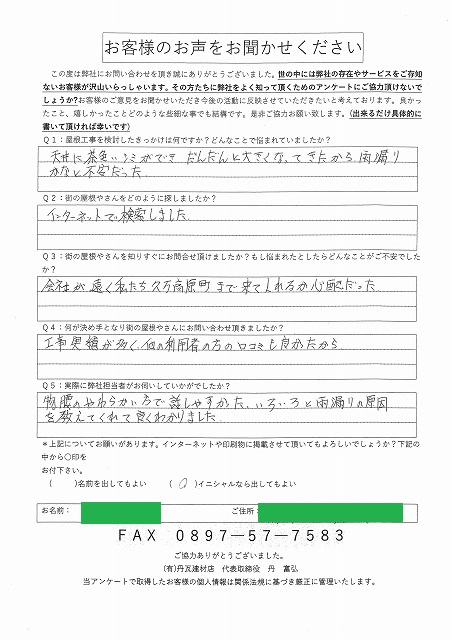 お客様のお声をお聞かせください
この度は弊社にお問い合わせを頂き誠にありがとうございました。世の中には弊社の存在やサービスをご存知
ないお客様が沢山いらっしゃいます。その方たちに弊社をよく知って頂くためのアンケートにご協力頂けないで
しょうか?お客様のご意見をお聞かせいただき今後の活動に反映させていただきたいと考えております。良かっ
たこと、嬉しかったことどのような些細な事でも結構です。是非ご協力お願い致します。(出来るだけ具体的に
書いて頂ければ幸いです)
Q1：屋根工事を検討したきっかけは何ですか？どんなことで悩まれていましたか？
天井に茶色いシミができ だんだんと大きくなってきたから雨漏り
かなと不安だった
Q2：街の屋根やさんをどのように探しましたか？
インターネットで検索しました
Q3：街の屋根やさんを知りすぐにお問合せ頂けましたか？もし悩まれたとしたらどんなことがご不安でした
か？
会社が遠く私たち久万高原町まで来てくれるか心配だった
Q4：何が決め手となり街の屋根やさんにお問い合わせ頂きましたか？
工事実績が多く、他の利用者の方の口コミも良かたから
Q5：実際に弊社担当者がお伺いしていかがでしたか？
物腰のやわらかい方で話しやすかた、いろいろと雨漏りの原因
を教えてくれて良くわかりました
＊上記についてお願いがあります。インターネットや印刷物に掲載させて頂いてもよろしいでしょうか？下記の
中から〇印を
お付下さい。
(　　)名前を出してもよい　　(　〇　)イニシャルなら出してもよい
お名前：　　ご住所：
FAX　0897－57－7583
ご協力ありがとうございました。
(有)丹瓦建材店　代表取締役　丹　富弘
当アンケートで取得したお客様の個人情報は関係法規に基づき厳正に管理いたします。